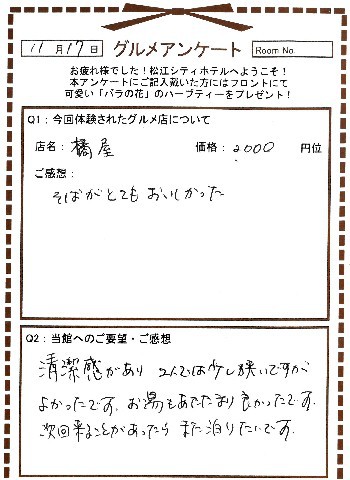 11月17日 グルメアンケート Room No.
お疲れ様でした!松江シティホテルへようこそ!
本アンケートにご記入戴いた方にはフロントにて
可愛い「バラの花」のハーブティーをプレゼント!
Q1:今回体験されたグルメ店について
店名: 橘屋 価格: 2000 円位
ご感想:
そばがとてもおいしかった
Q2:当館へのご要望・ご感想
清潔感があり 2人では少し狭いですが
よかったです。お湯もあたたまり良かったです。
次回来ることがあったら また泊りたいです。